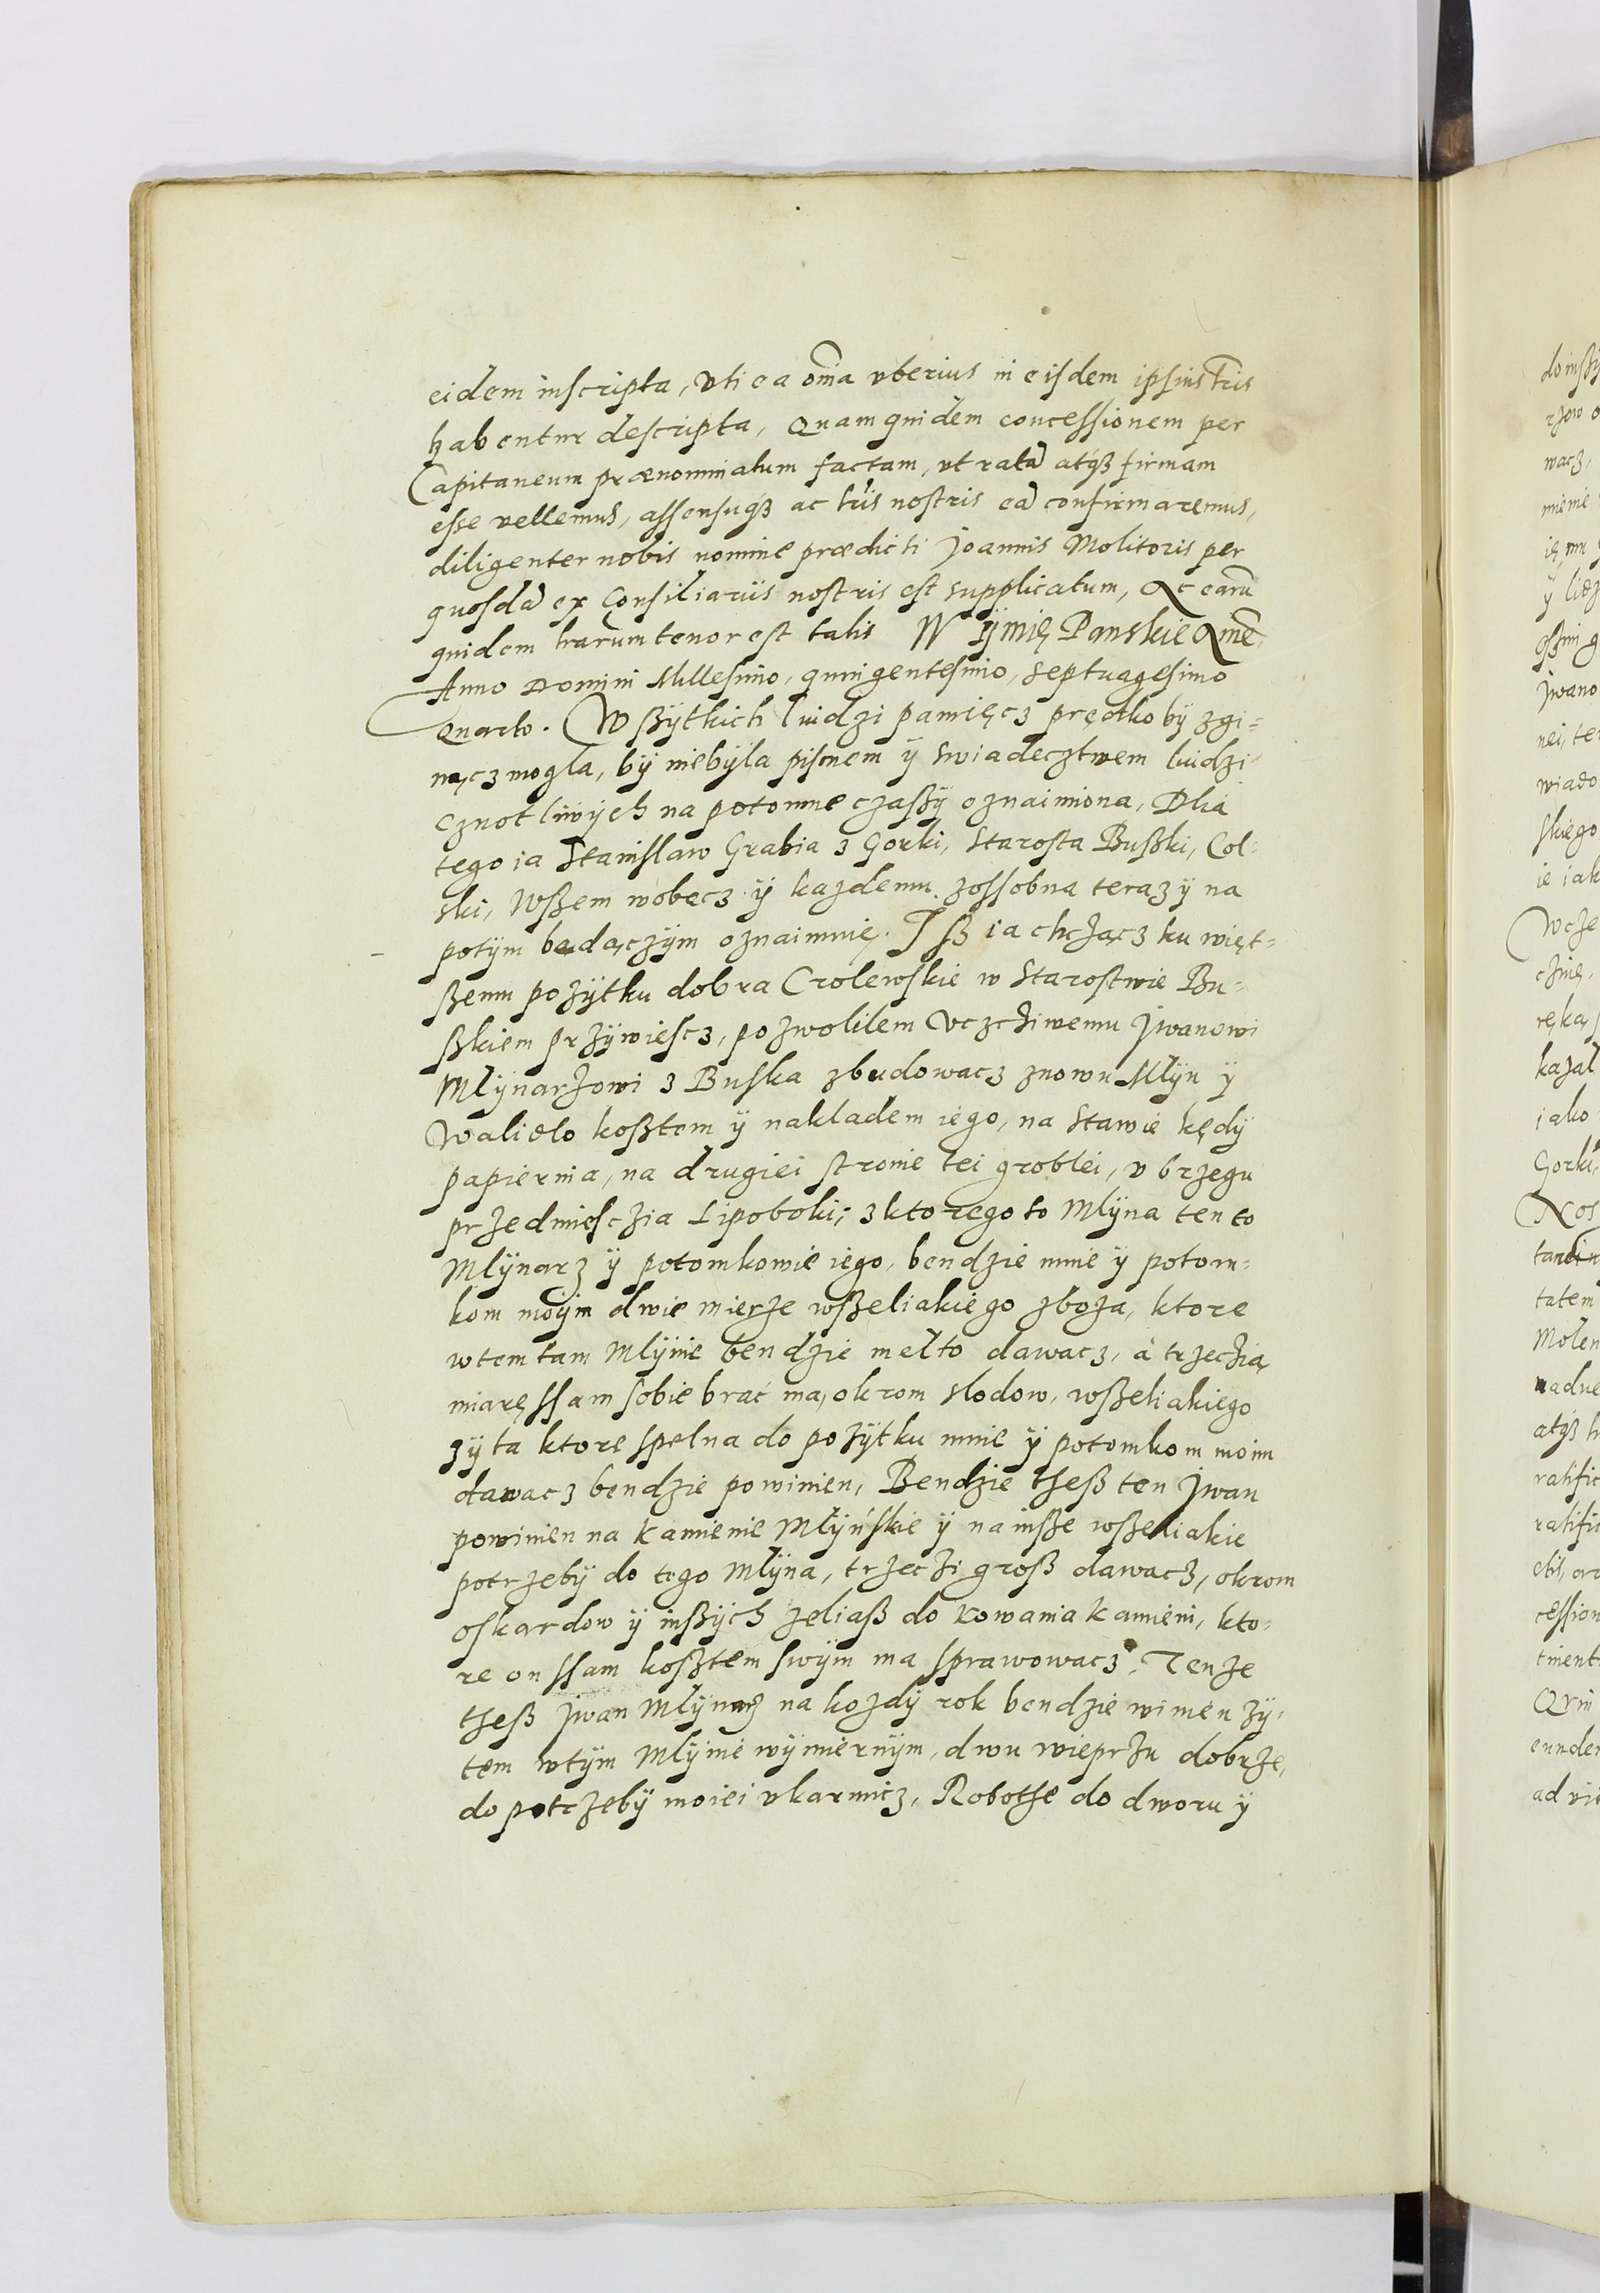 eidem inscripta, vti ea om̃ia vberius in eisdem ipsius l̃ris
habentur descripta, Quam quidem concessionem per
Capitaneum prænominatum factam, vt ratã atqꝫ firmam
esse vellemus, assensuqꝫ ac l̃ris nostris eã confirmaremus,
diligenter nobis nomine prædicti Joannis Molitoris per
quosdã ex Consiliariis nostris est supplicatum, Ac earũ
quidem l̃rarum tenor est talis W ÿmię Panskie Amẽ
Anno Domini Millesimo, quingentesimo, septuagesimo
Quarto. Wßÿtkich ludzi pamięcz prędko bÿ zgi=
nącz mogla, bÿ niebÿla pismem ÿ swiadecztwem ludzi
cznotliwÿch na potomne czaßÿ oznaimiona, Dlia
tego ia Stanislaw Grabia z Gorki, Starosta Bußki, Col=
ski, Wßem wobecz ÿ kazdemu zossobna teraz ÿ na
potÿm będączÿm oznaimuię. Iß ia chcząc z ku więt=
ßemu pozÿtku dobra Crolewskie w Starostwie Bu=
ßkiem przÿwiescz, pozwolilem Vczcziwemu Jwanowi
Mlÿnarzowi z Buska zbudowacz znowu Mlÿn ÿ
Walidlo kosztem ÿ nakladem iego, na Stawie kędÿ
papiernia, na drugiei stronie tei groblei, v brzegu
przedmiesczia Lipoboki; z ktorego to Mlÿna ten to
Mlÿnarz ÿ potomkowie iego, bendzie mnie ÿ potom=
kom moÿm dwie mierze wßeliakiego zboza, ktore
wtem tam Mlÿnie bendzie melto dawacz, à trzeczią
miarę ssam sobie brać ma, okrom slodow, wßeliakiego
zÿta ktore spelna do pozÿtku mnie ÿ potomkom moim
dawacz bendzie powinien, Bendzie theß ten Jwan
powinien na kamienie Mlÿńskie ÿ na inße wßeliakie
potrzebÿ do tego Mlÿna, trzeczi groß dawacz, okrom
oskardow ÿ inßÿch zeliaß do kowania kamieni, kto=
re on ssam kosztem swÿm ma sprawowacz, Tenze
theß Jwan Mlÿnarz na kozdÿ rok bendzie winien zÿ=
tem wtÿm Mlÿnie wÿmiernÿm, dwu wieprzu dobrze,
do potrzebÿ moiei vkarmicz, Robothe do dworu ÿ